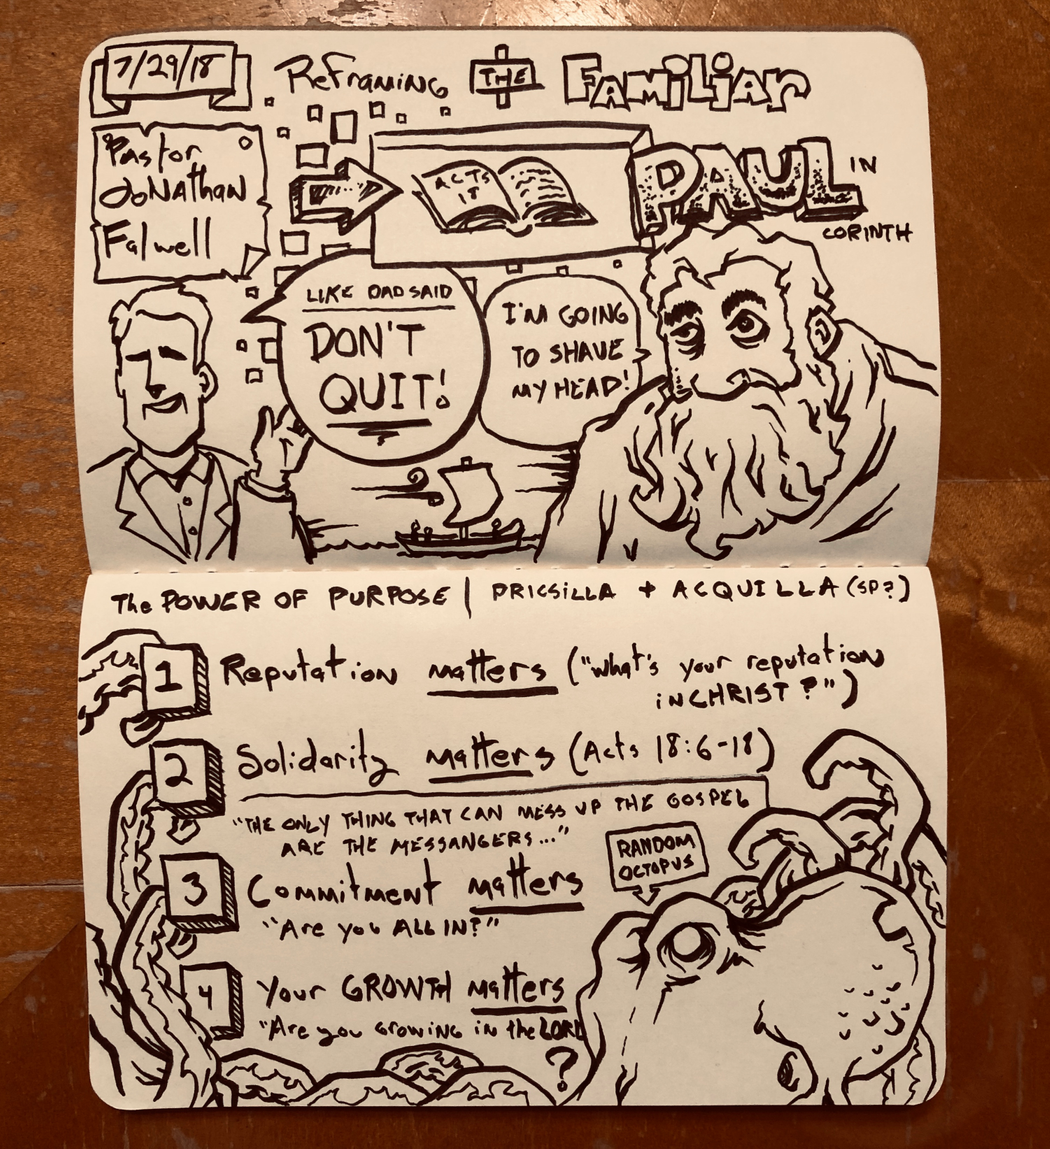 7/29/18
Reframing THE Familiar
Pastor
Jonathan
Falwell
ACTS
18
PAUL IN
CORINTH
LIKE DAD SAID
DON'T
QUIT!
I'M GOING
TO SHAVE
MY HEAD!
The POWER OF PURPOSE | PRICSILLA + ACQUILLA (SP?)
1 Reputation matters ("what's your reputation
in CHRIST?")
2 Solidarity matters (Acts 18:6-18)
"THE ONLY THING THAT CAN MESS UP THE GOSPEL
ARE THE MESSANGERS..."
RANDOM
OCTOPUS
3 Commitment matters
"Are you ALL IN?"
4 Your GROWTH matters
"Are you growing in the LORD
?